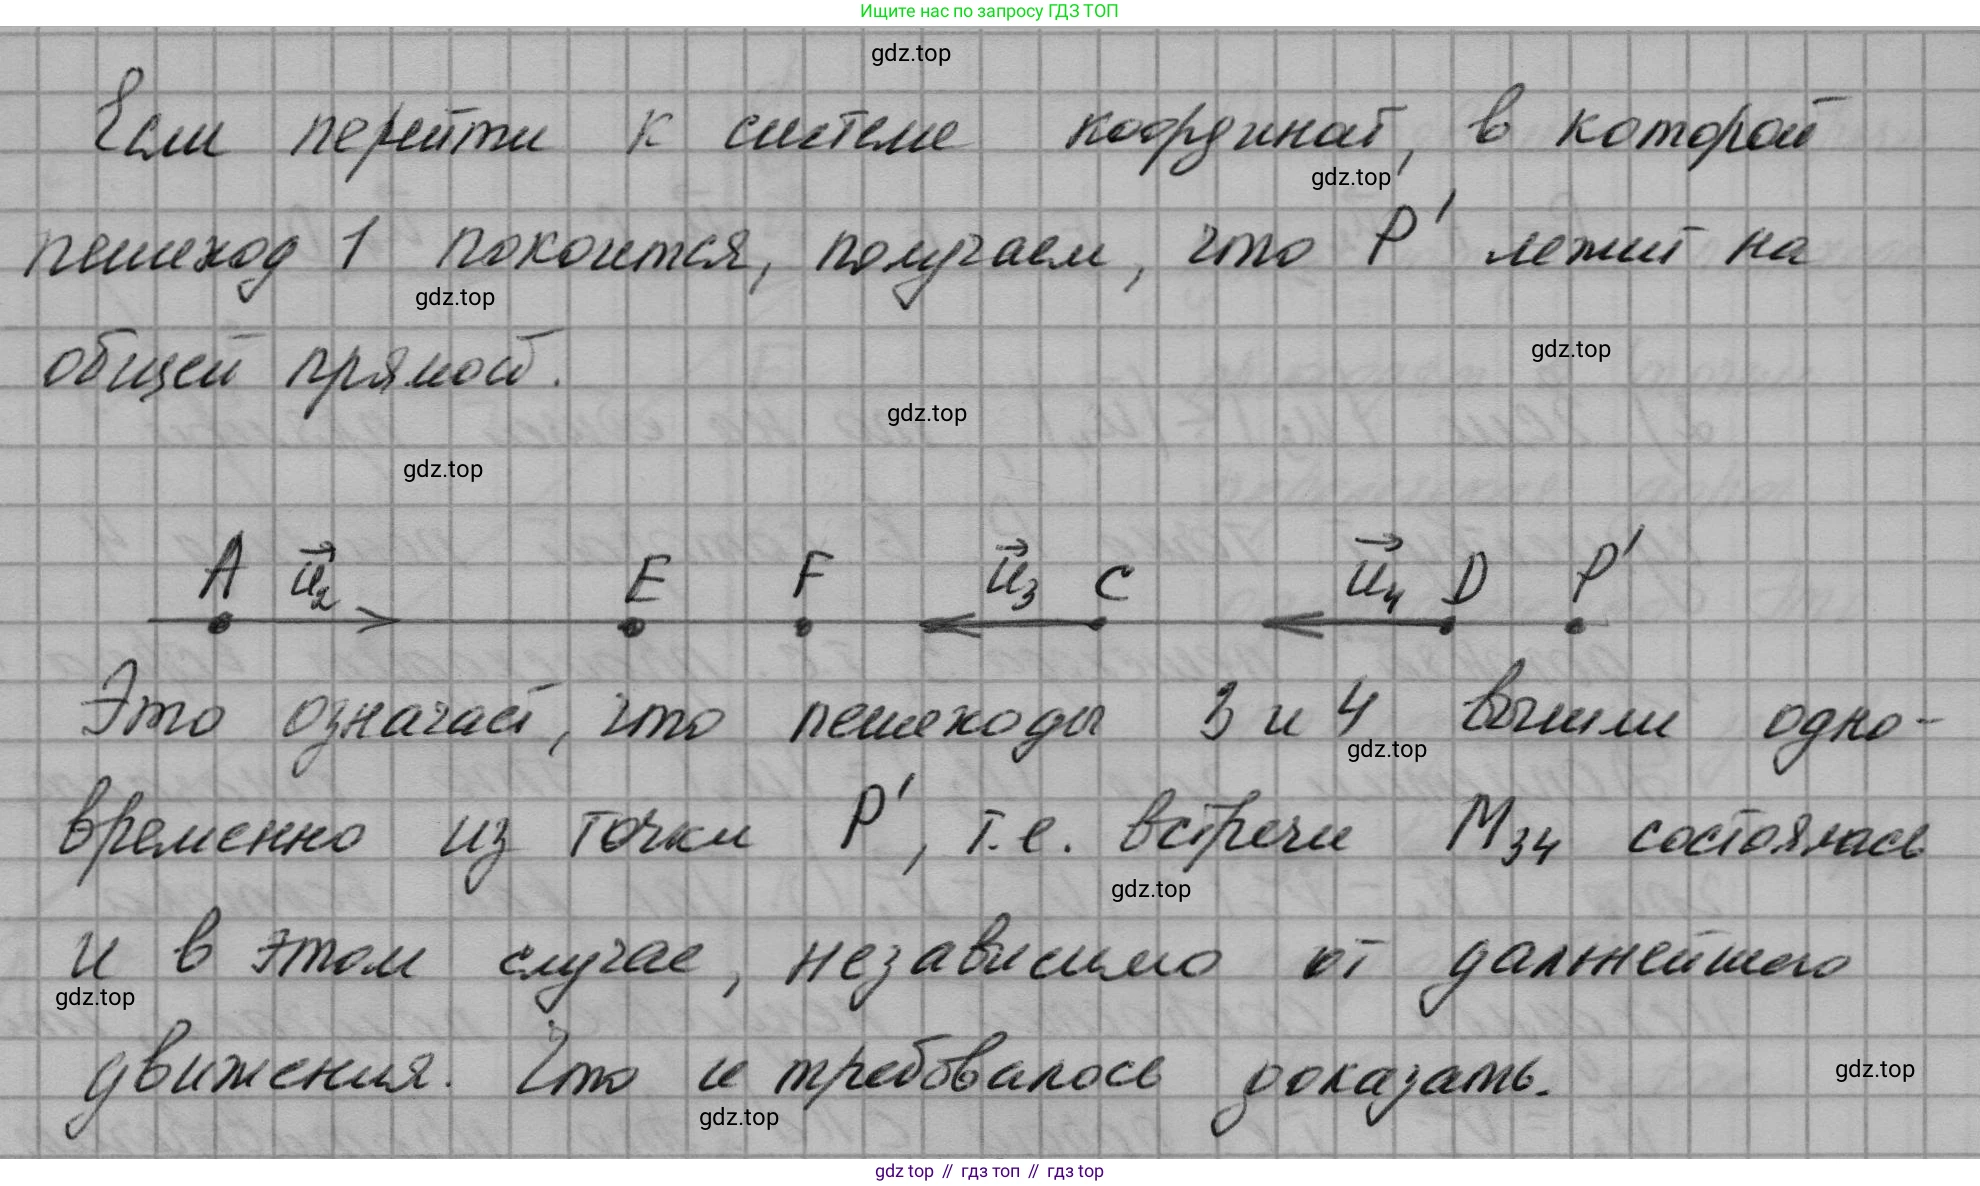 Ищите нас по запросу ГДЗ ТОП
gdz.top
Если перейти к системе координат, в которой
gdz.top
пешеход 1 покоится, получаем, что P' лежит на
gdz.top
общей прямой.
gdz.top
gdz.top
gdz.top
A u₂ E F u₃ C u₄ D P'
Это означает, что пешеходы 3 и 4 вышли одно-
gdz.top
временно из точки P', т.е. встречи M₃₄ состоялась
gdz.top
и в этом случае, независимо от дальнейшего
gdz.top
движения. Что и требовалось доказать.
gdz.top
gdz.top
gdz.top // гдз топ // гдз топ